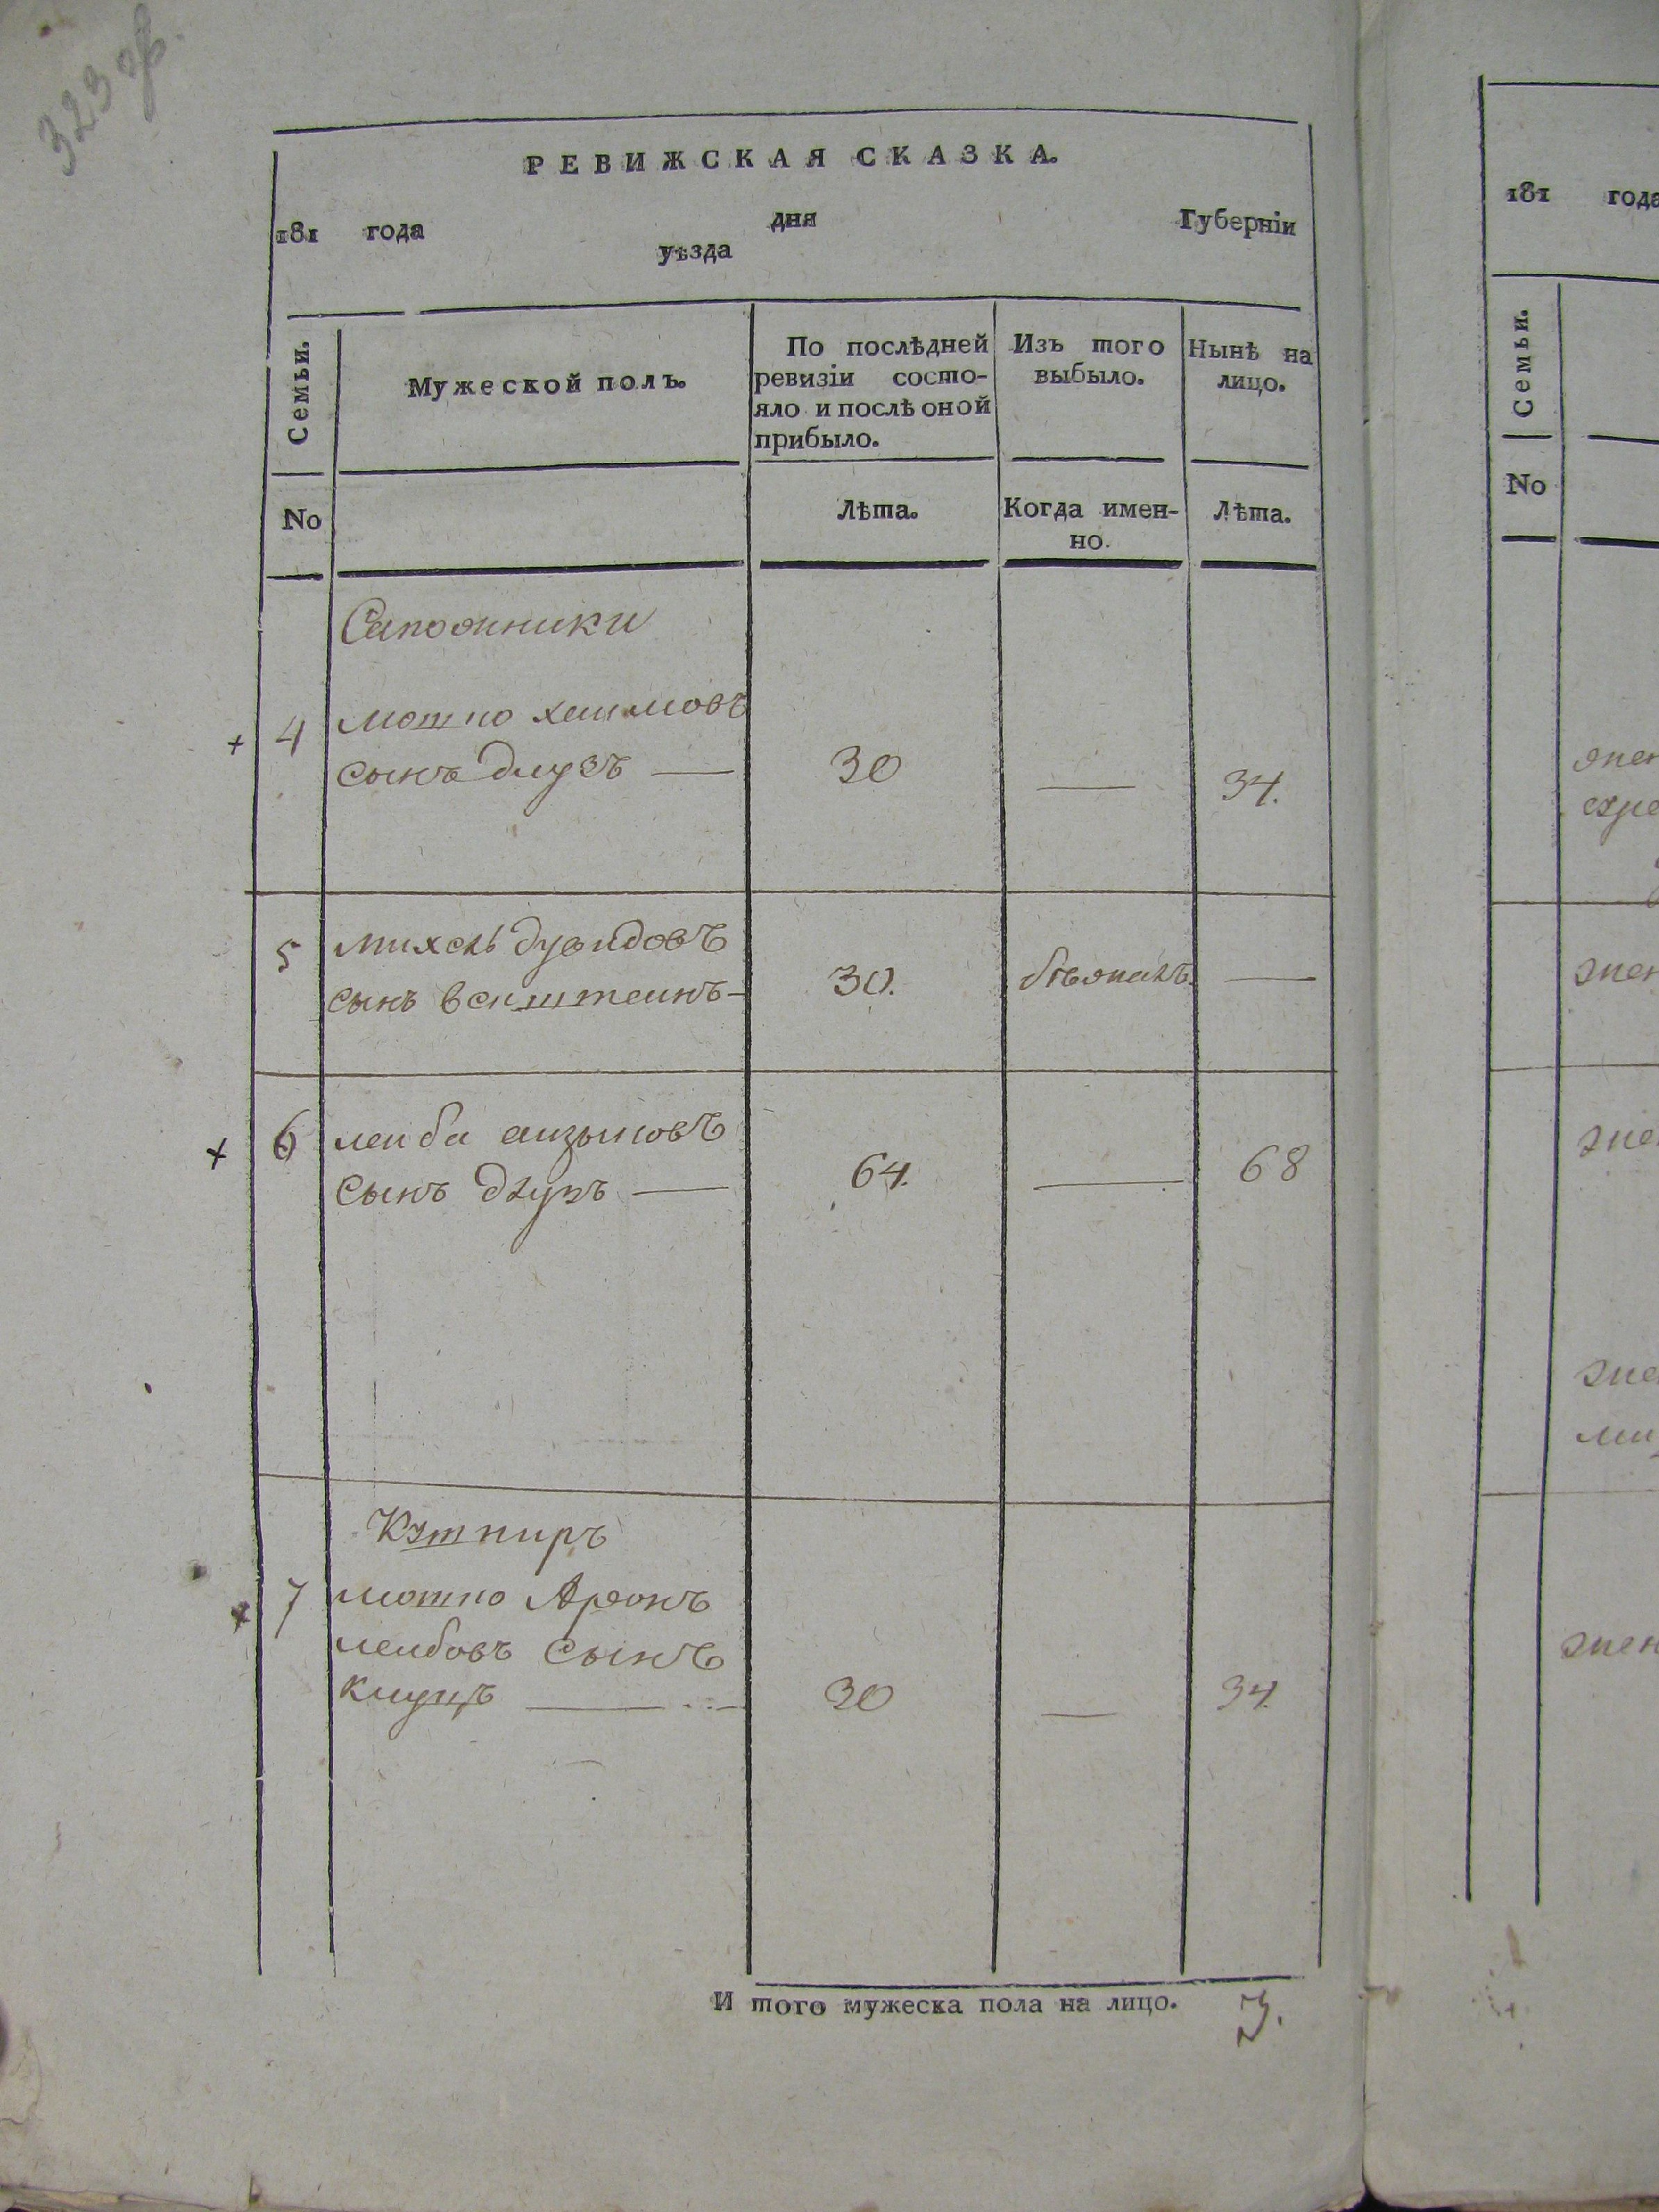 323 об.
РЕВИЖСКАЯ СКАЗКА.
181 года дня Губерніи
уѣзда
Семьи. Мужеской полъ. По послѣдней ревизіи состо-яло и послѣ оной прибыло. Изъ того выбыло. Нынѣ на лицо.
No Лѣта. Когда имен-но. Лѣта.
Сапожники
4 мотно хаимовъ
сынъ длузъ — 30 — 34.
5 михель дувидовъ
сынъ векштеинъ — 30. бѣжалъ. —
6 леиба аизыковъ
сынъ длузъ — 64. — 68
7 мотно Аронъ
леибовъ сынъ
30 — 34.
И того мужеска пола на лицо. 3.
181 года
Семьи.
No
жен
жен
жен